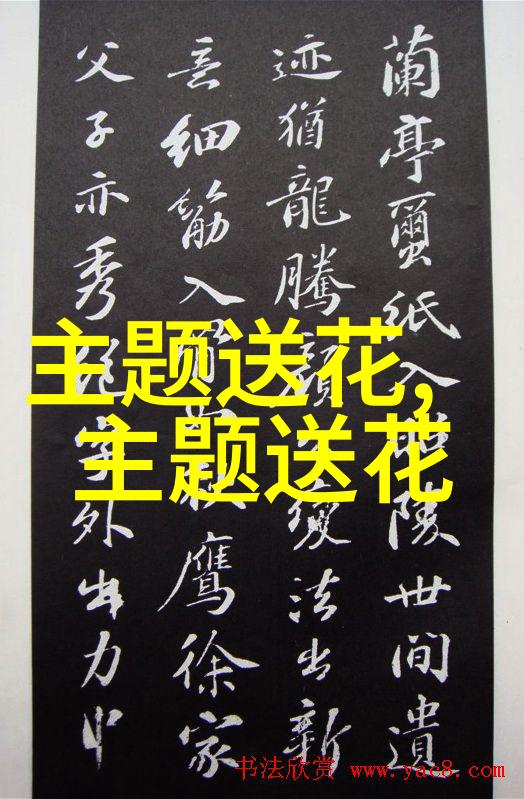 蘭亭蠒紙入陵世間遺
迹猶龍騰顏變法出新
意細筋入鷹徐家
父子亦秀絕字外出力中
主题送花,
主题送花
书法欣赏 www.yac8.com